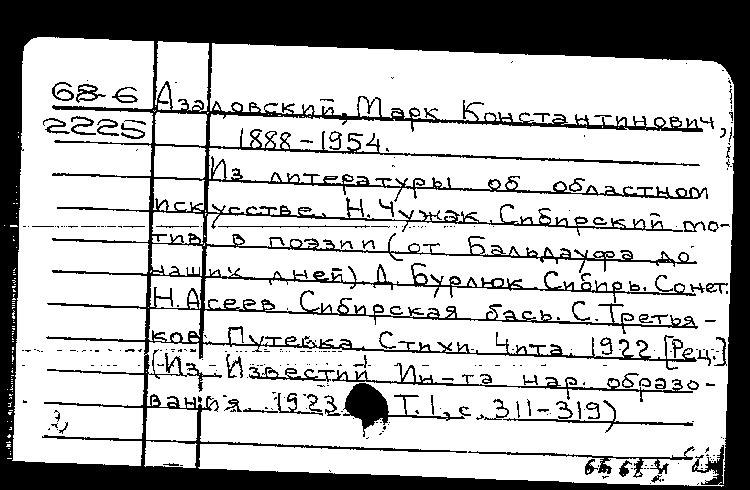 68-6 Азадовский, Марк Константинович,
2225 1888-1954.
Из литературы об областном
искусстве. Н. Чужак. Сибирский мо-
тив в поэзии (от Бальдауфа до
наших дней). Д. Бурлюк. Сибирь. Сонет.
Н. Асеев. Сибирская бась. С. Третья-
ков. Путевка. Стихи. Чита. 1922. [Рец.]
(Из Известий Ин-та нар. образо-
вания. 1923 Т. 1, с. 311-319)
2